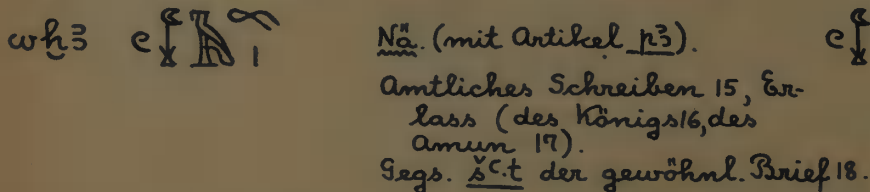 wḫꜣ Nä. (mit Artikel pꜣ).
Amtliches Schreiben 15, Er-
lass (des Königs 16, des
Amun 17).
Gegs. šꜥ.t der gewöhnl. Brief 18.